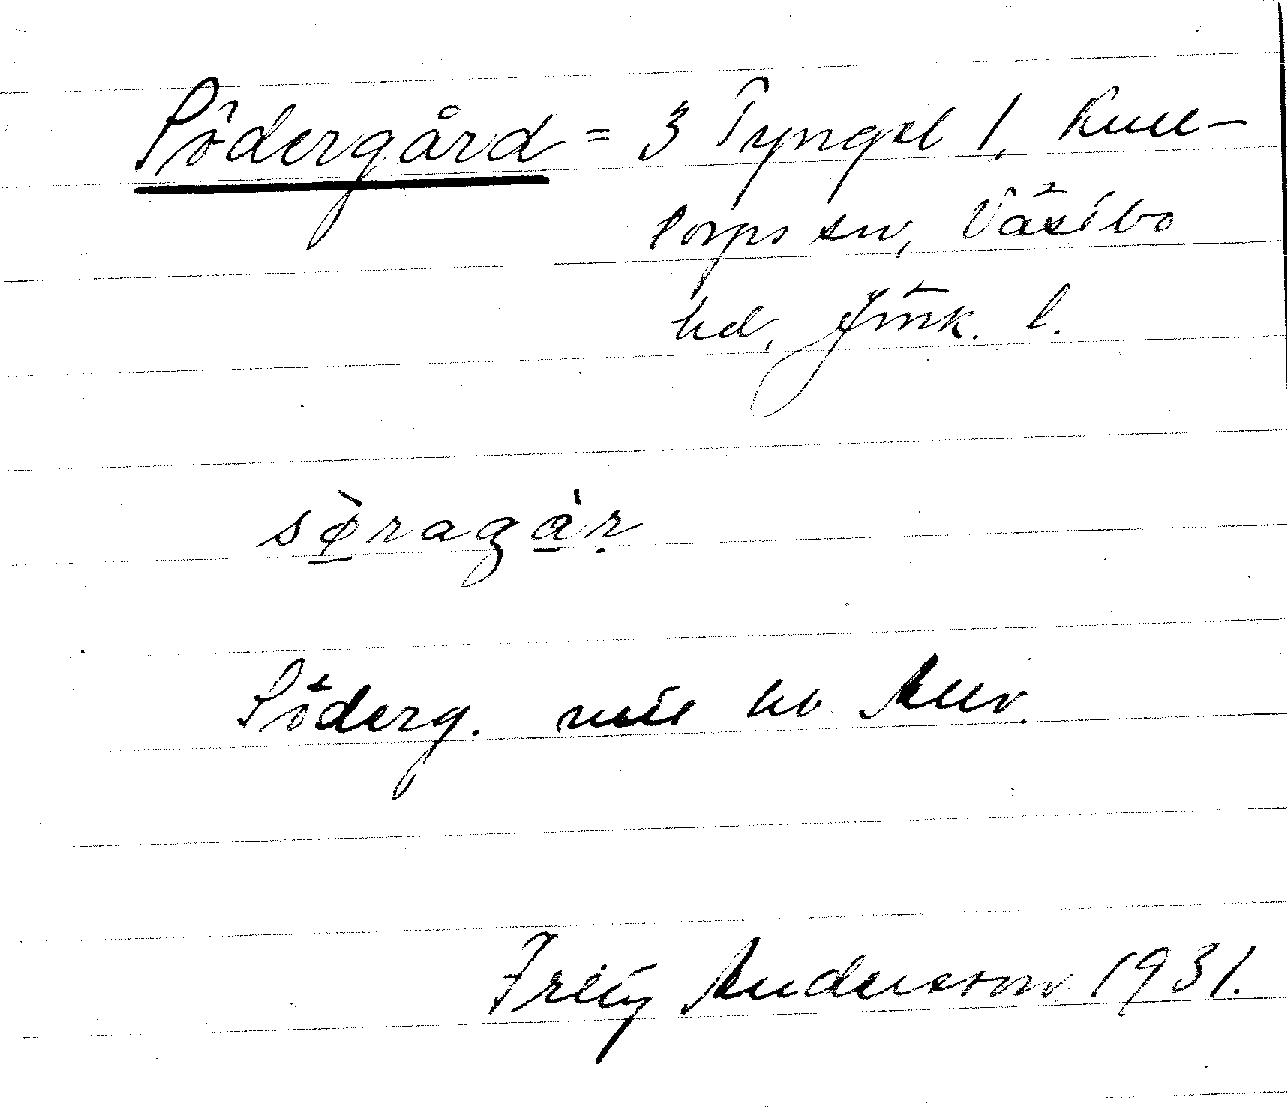 Södergård = 3 Tyngel 1, Kull-
torps sn, Västbo
hd, Jönk. l.
sø̀ragàr
Söderg. mtl
Fritz Andersson 1931.